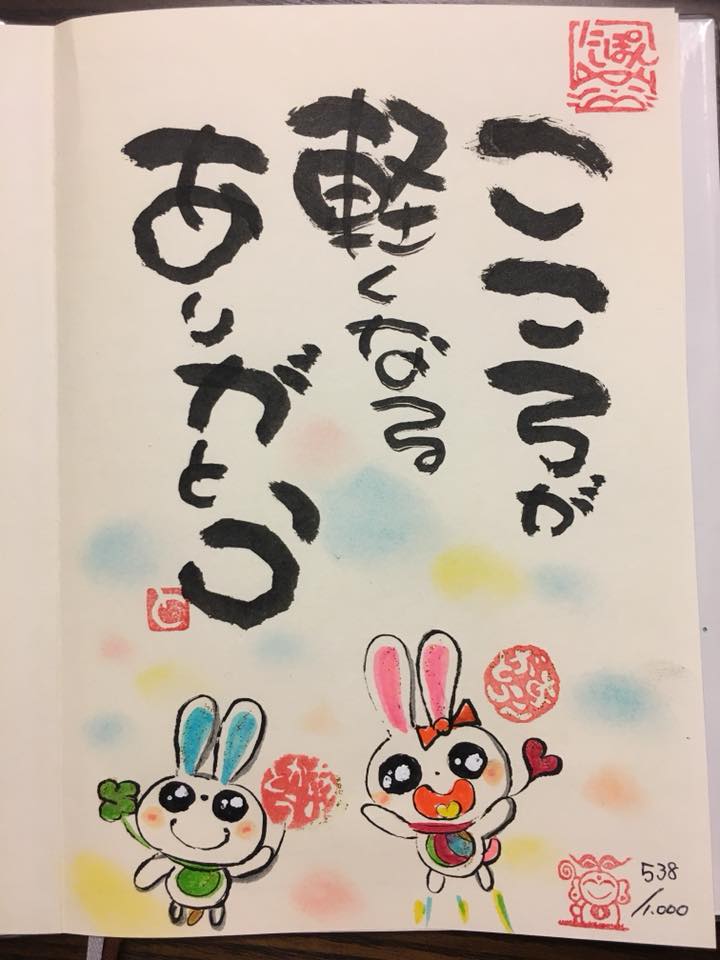 こころが
軽くなる
ありがとう
にしぽん
538
/1.000